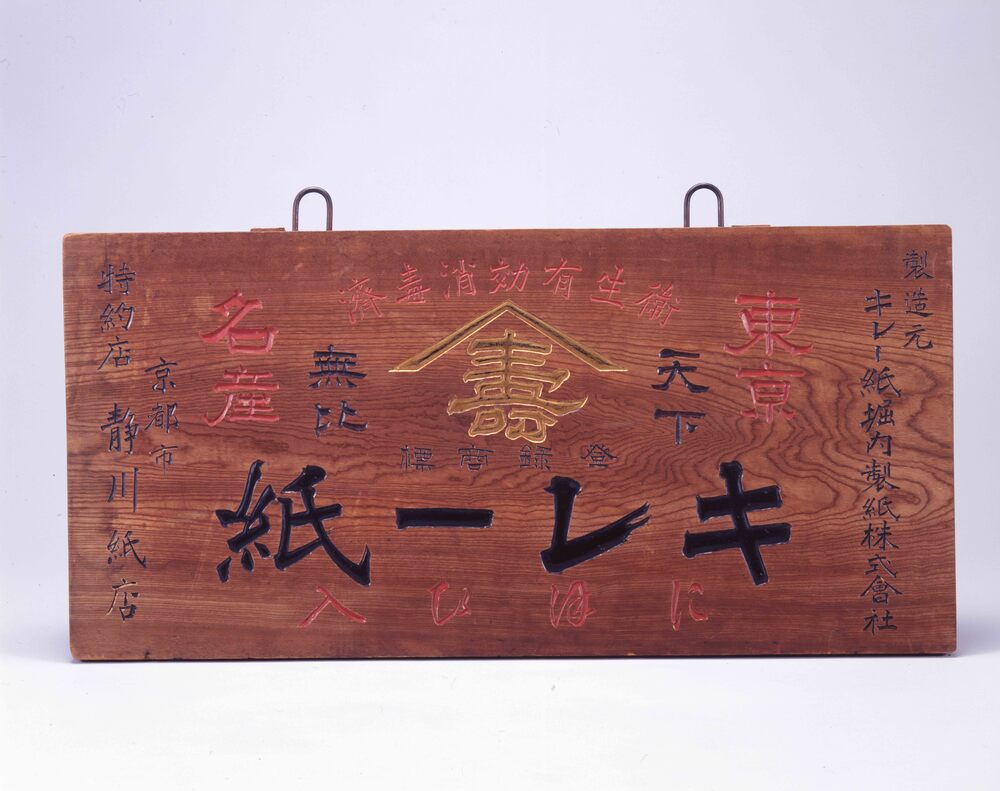 製造元
キレー紙堀内製紙株式會社
衛生有効消毒濟
東京
名産
天下
無比
壽
登録商標
キレー紙
にほひ入
特約店
京都市
静川紙店